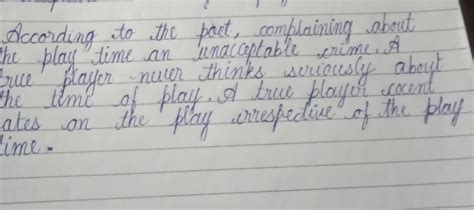 According to the poet, complaining about
he play time an unacceptable crime. A
rue player never thinks seriously about
the time of play. A true player cocent
ates on the play irrespective of the play
time.